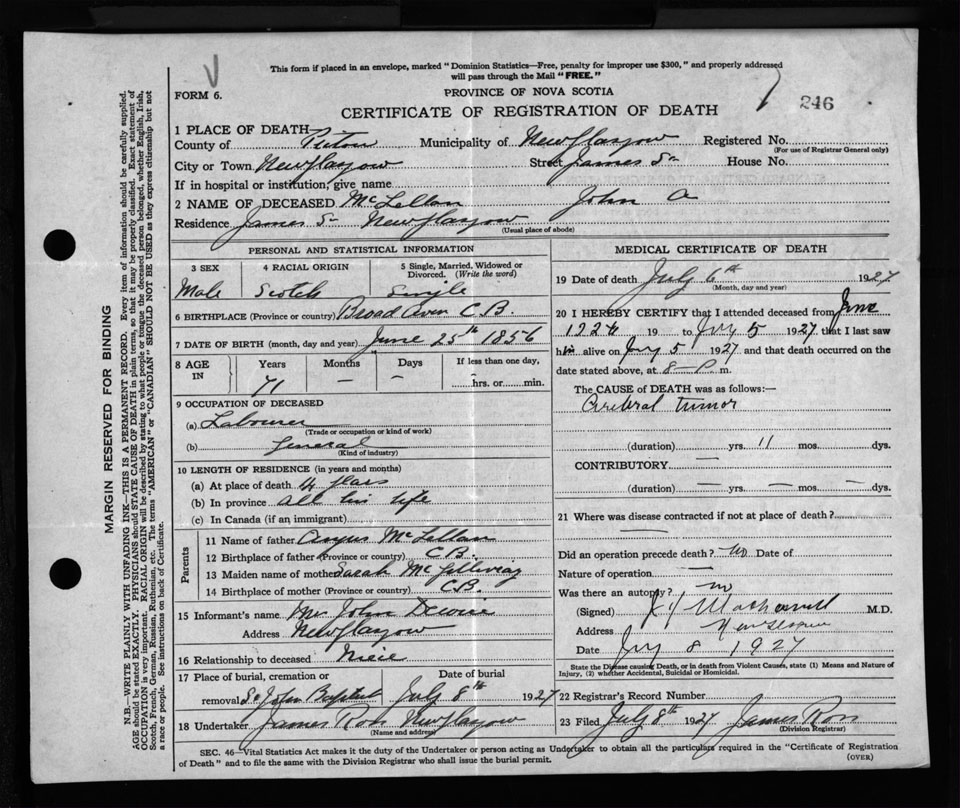 This form if placed in an envelope, marked "Dominion Statistics—Free, penalty for improper use $300," and properly addressed
will pass through the Mail "FREE."
FORM 6.
PROVINCE OF NOVA SCOTIA
CERTIFICATE OF REGISTRATION OF DEATH
246
1 PLACE OF DEATH
County of Pictou Municipality of New Glasgow Registered No.
(For use of Registrar General only)
City or Town New Glasgow Street James St House No.
If in hospital or institution, give name
2 NAME OF DECEASED McLellan John A
Residence James St New Glasgow
(Usual place of abode)
PERSONAL AND STATISTICAL INFORMATION
3 SEX 4 RACIAL ORIGIN 5 Single, Married, Widowed or Divorced. (Write the word)
Male Scotch Single
6 BIRTHPLACE (Province or country) Broad Cove C.B.
7 DATE OF BIRTH (month, day and year) June 25th 1856
8 AGE IN Years Months Days If less than one day,
71 — — hrs. or min.
9 OCCUPATION OF DECEASED
(a) Labourer
(Trade or occupation or kind of work)
(b) General
(Kind of industry)
10 LENGTH OF RESIDENCE (in years and months)
(a) At place of death 4 years
(b) In province all his life
(c) In Canada (if an immigrant)
Parents
11 Name of father Angus McLellan
12 Birthplace of father (Province or country) C.B.
13 Maiden name of mother Sarah McGillivray
14 Birthplace of mother (Province or country) C.B.
15 Informant's name Mr John
Address New Glasgow
16 Relationship to deceased Niece
17 Place of burial, cremation or Date of burial
removal St John Baptist July 8th 1927
18 Undertaker James Ross New Glasgow
(Name and address)
MEDICAL CERTIFICATE OF DEATH
19 Date of death July 6th 1927
(Month, day and year)
20 I HEREBY CERTIFY that I attended deceased from June
1926 19 to July 5 1927, that I last saw
him alive on July 5 1927 and that death occurred on the
date stated above, at 8 P. m.
The CAUSE of DEATH was as follows:—
Cerebral tumor
(duration) yrs. 11 mos. dys.
CONTRIBUTORY —
(duration) — yrs. — mos. — dys.
21 Where was disease contracted if not at place of death?
—
Did an operation precede death? no Date of
Nature of operation —
Was there an autopsy? no
(Signed) M.D.
Address New Glasgow
Date July 8 1927
State the Disease causing Death, or in death from Violent Causes, state (1) Means and Nature of
Injury, (2) whether Accidental, Suicidal or Homicidal.
22 Registrar's Record Number
23 Filed July 8th 1927 James Ross
(Division Registrar)
SEC. 46—Vital Statistics Act makes it the duty of the Undertaker or person acting as Undertaker to obtain all the particulars required in the "Certificate of Registration
of Death" and to file the same with the Division Registrar who shall issue the burial permit.
(OVER)
MARGIN RESERVED FOR BINDING
N.B.—WRITE PLAINLY WITH UNFADING INK—THIS IS A PERMANENT RECORD. Every item of information should be carefully supplied.
AGE should be stated EXACTLY. PHYSICIANS should STATE CAUSE OF DEATH in plain terms, so that it may be properly classified. Exact statement of
OCCUPATION is very important. RACIAL ORIGIN will be described by stating to what people or tongue the deceased person belonged, whether English, Irish,
Scotch, French, German, Russian, Ruthenian, etc. The terms "AMERICAN" or "CANADIAN" SHOULD NOT BE USED as they express citizenship but not
a race or people. See instructions on back of Certificate.